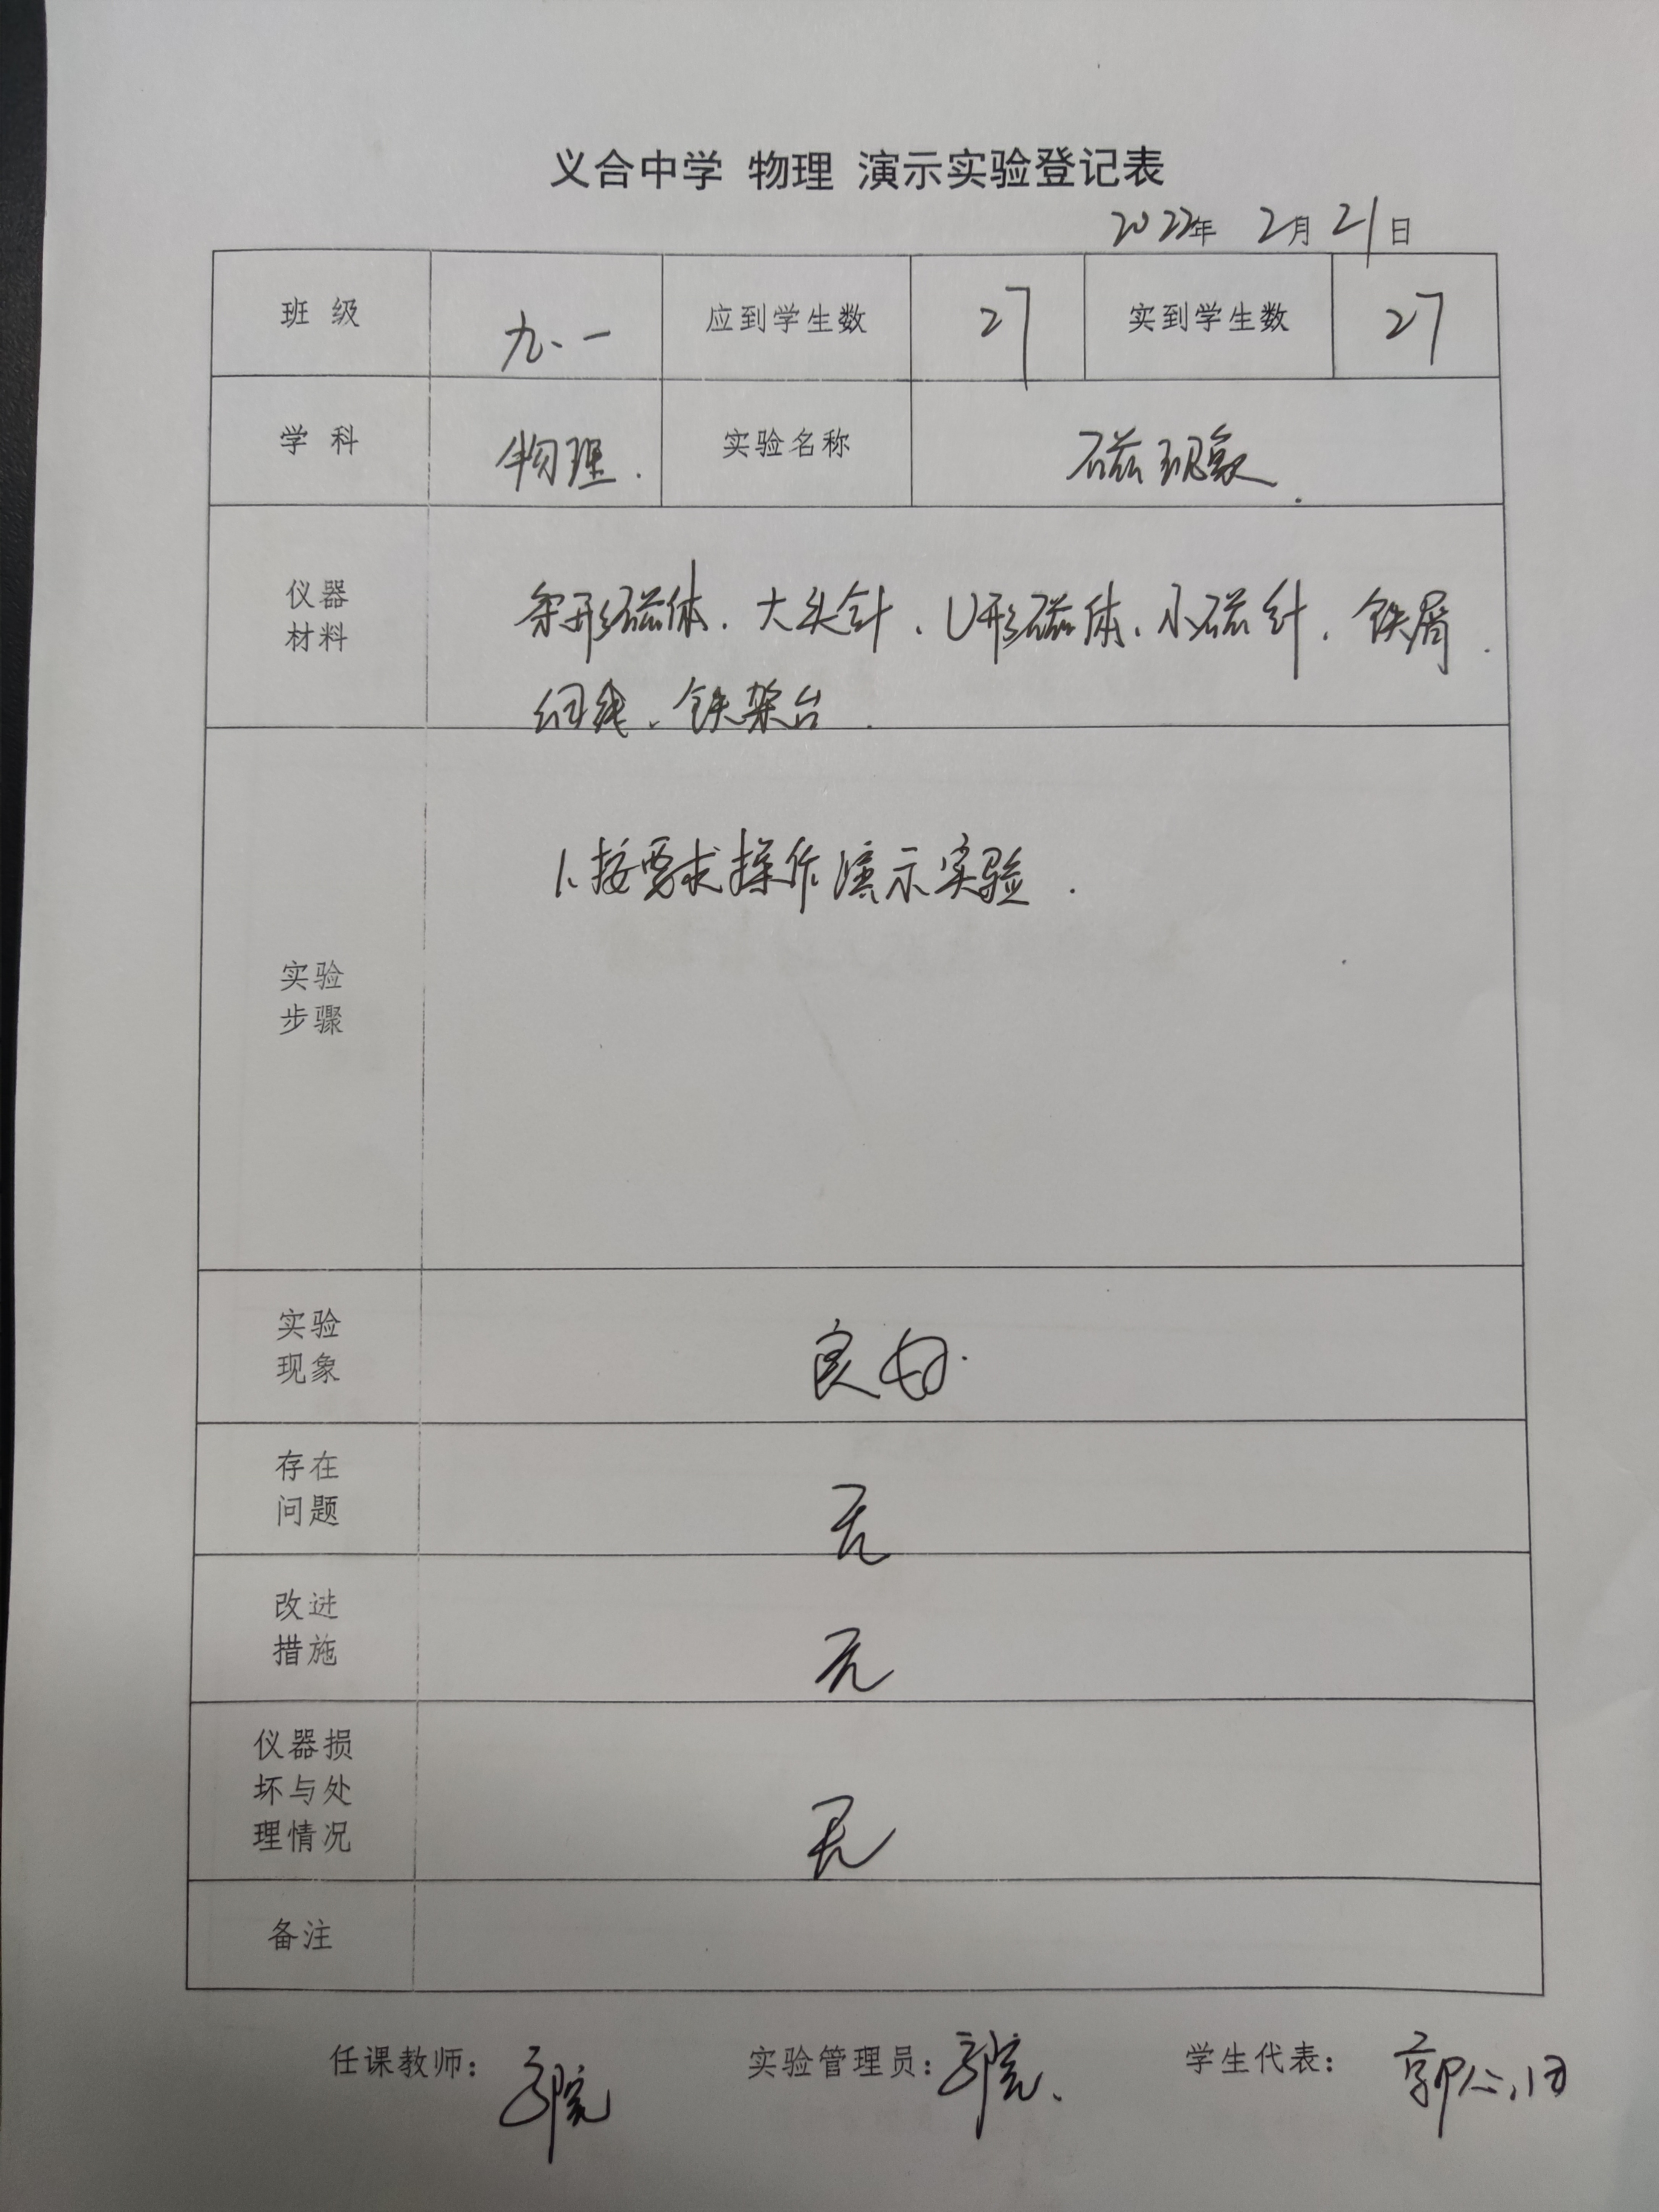 义合中学 物理 演示实验登记表
2022年 2月 21日
班 级 九.一 应到学生数 27 实到学生数 27
学 科 物理. 实验名称 磁现象.
仪器
材料
条形磁体、大头针、U形磁体、小磁针、铁屑、
细线、铁架台.
实验
步骤
1、按要求操作演示实验.
实验
现象
良好.
存在
问题
无
改进
措施
无
仪器损
坏与处
理情况
无
备注
任课教师: 实验管理员: 学生代表: 郭